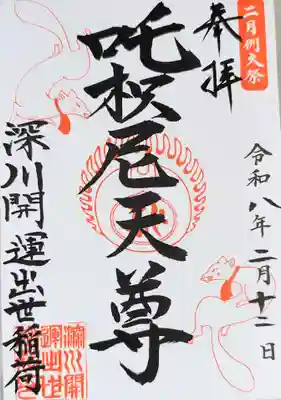 二月例大祭
奉拝
令和八年二月十二日
吒枳尼天尊
深川開運出世稲荷
深川開
運出世